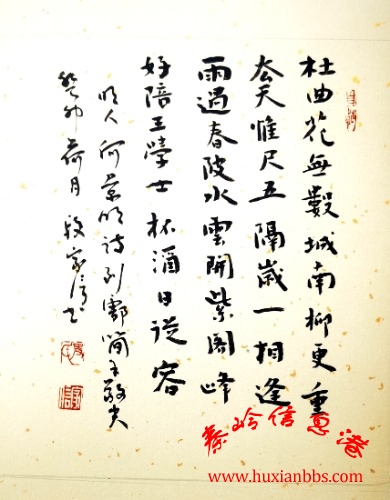 杜曲花無數城南柳更重
去天惟尺五隔歲一相逢
雨過春陂水雲開紫閣峰
好陪王學士杯酒日從容
明人何景明诗到鄠简王敬夫
癸卯荷月段家信书
秦岭信息港
www.huxianbbs.com